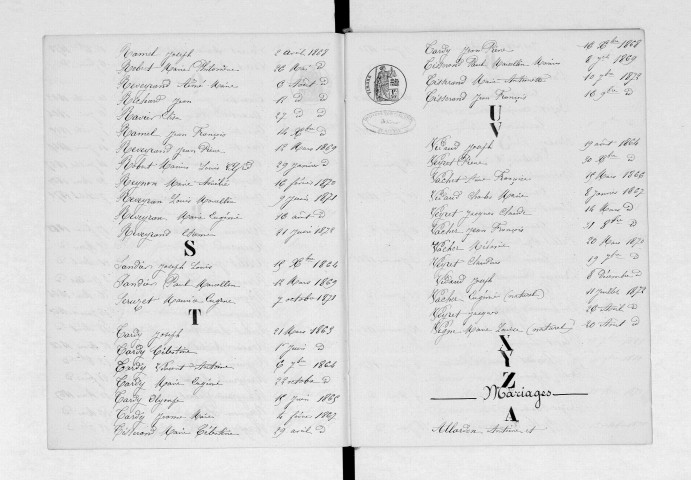 Ramel Joseph 2 avril 1868
Robert Marie Philomène 20 Mai D
Reveyrand Aimé Marie 6 Août D
Richard Jean 12 D D
Ravier Elsa 27 D D
Ramel Jean François 14 Xbre D
Reveyrand Jean Pierre 12 Mars 1869
Robert Marius Louis 29 janvier D
Reynon Marie Amélie 10 février 1870
Reveyron Louis Marcellin 9 Juin 1871
Reveyron Marie Eugénie 10 août D
Reveyrand 21 Juin 1872
S
Sandós Joseph Louis 15 Xbre 1864
Sandós Paul Marcellin 12 Mars 1869
Seruzet Maurice Eugène 7 octobre 1871
T
Tardy Joseph 21 Mars 1863
Tardy Célestine 1er Juin D
Tardy Vincent Antoine 6 7bre 1864
Tardy Marie Eugénie 22 octobre D
Tardy Olympe 15 Juin 1865
Tardy Jeanne Marie 4 février 1867
Tisserand Marie Célestine 29 avril D
Tardy Jean Pierre 10 Xbre 1868
Paul Marcellin Marius 8 1869
Tisserand Marie Antoinette 10 9bre 1873
Tisserand Jean François 16 9bre D
U
V
Vidaud Joseph 19 août 1864
Veyret Pierre 30 Xbre D
Vachet Françoise 17 Mars 1866
Vidaud Charles Marie 8 Janvier 1867
Veyret Jacques Claude 14 Mars D
Vacher Jean François 31 8bre D
Vacher Mélanie 20 Mars 1870
Veyret Claudius 19 7bre D
Vidaud Joseph 6 Décembre D
Vacher Eugénie (naturel) 11 juillet 1872
Veyret Jacques 26 Août D
Vigne Marie Louise (naturel) 20 Août D
X
Y
Z
Mariages
A
Allardon Antoine et